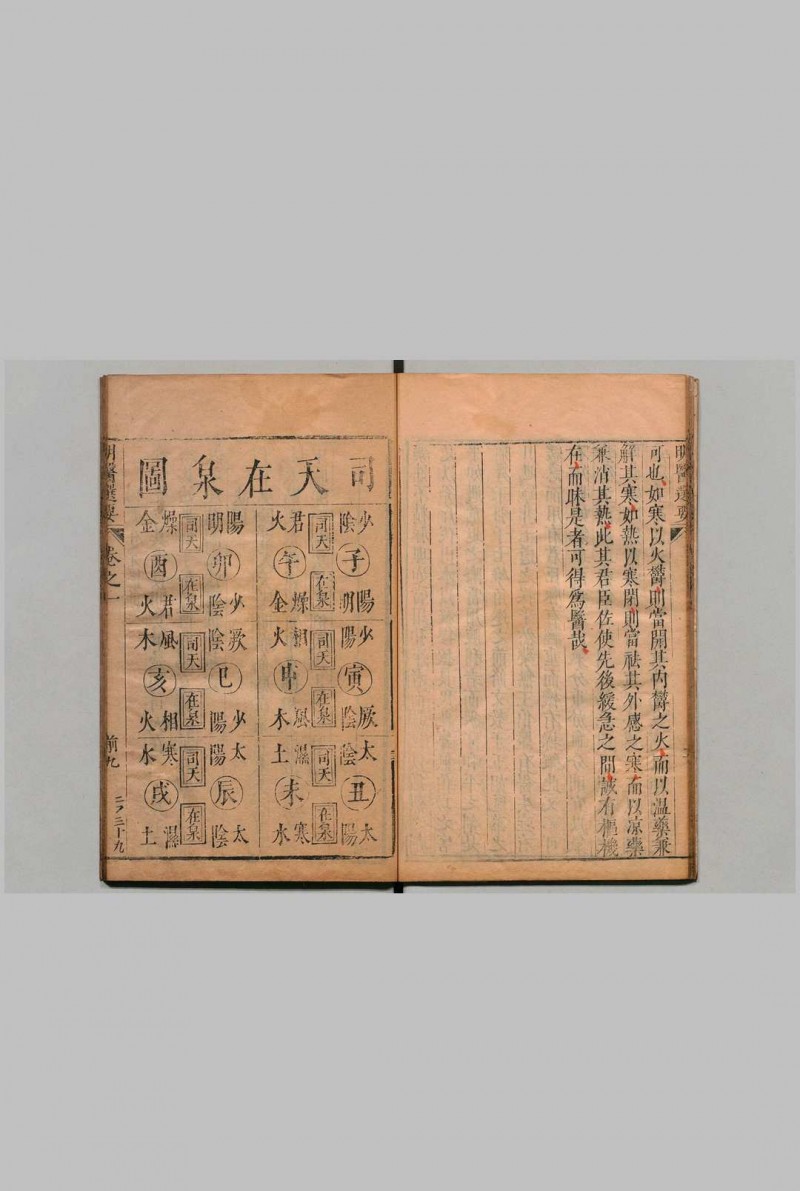 可也如寒以火欝則當開其內欝之火而以温藥兼
解其寒如熱以寒閉則當祛其外感之寒而以凉藥
兼消其熱此其君臣佐使先後緩急之間誠有樞機
在而昧是者可得為醫哉
司天在泉圖
少陰 子 陽明 司天 在泉 君火 午 燥金
少陽 寅 厥陰 司天 在泉 相火 申 風木
太陰 丑 太陽 司天 在泉 濕土 未 寒水
陽明 卯 少陰 司天 在泉 燥金 酉 君火
厥陰 巳 少陽 司天 在泉 風木 亥 相火
太陽 辰 太陰 司天 在泉 寒水 戌 濕土
明醫選要 卷之一 前九 二ノ三十九